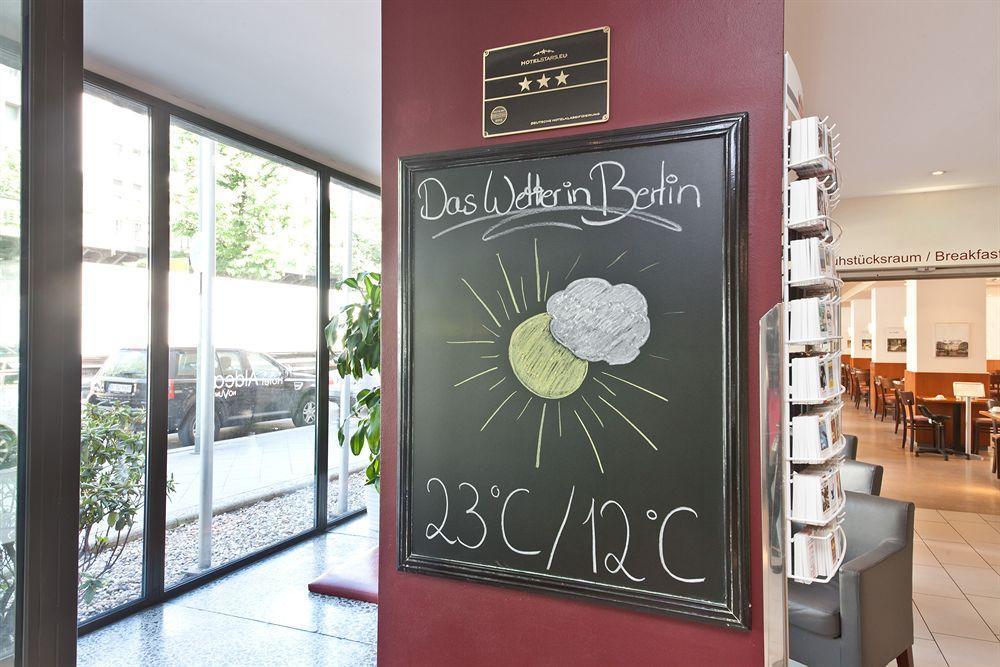 HOTELSTARS.EU
DEUTSCHE HOTELKLASSIFIZIERUNG
Das Wetter in Berlin
23°C / 12°C
uhstücksraum / Breakfast
Hotel Aldea
NOVUM